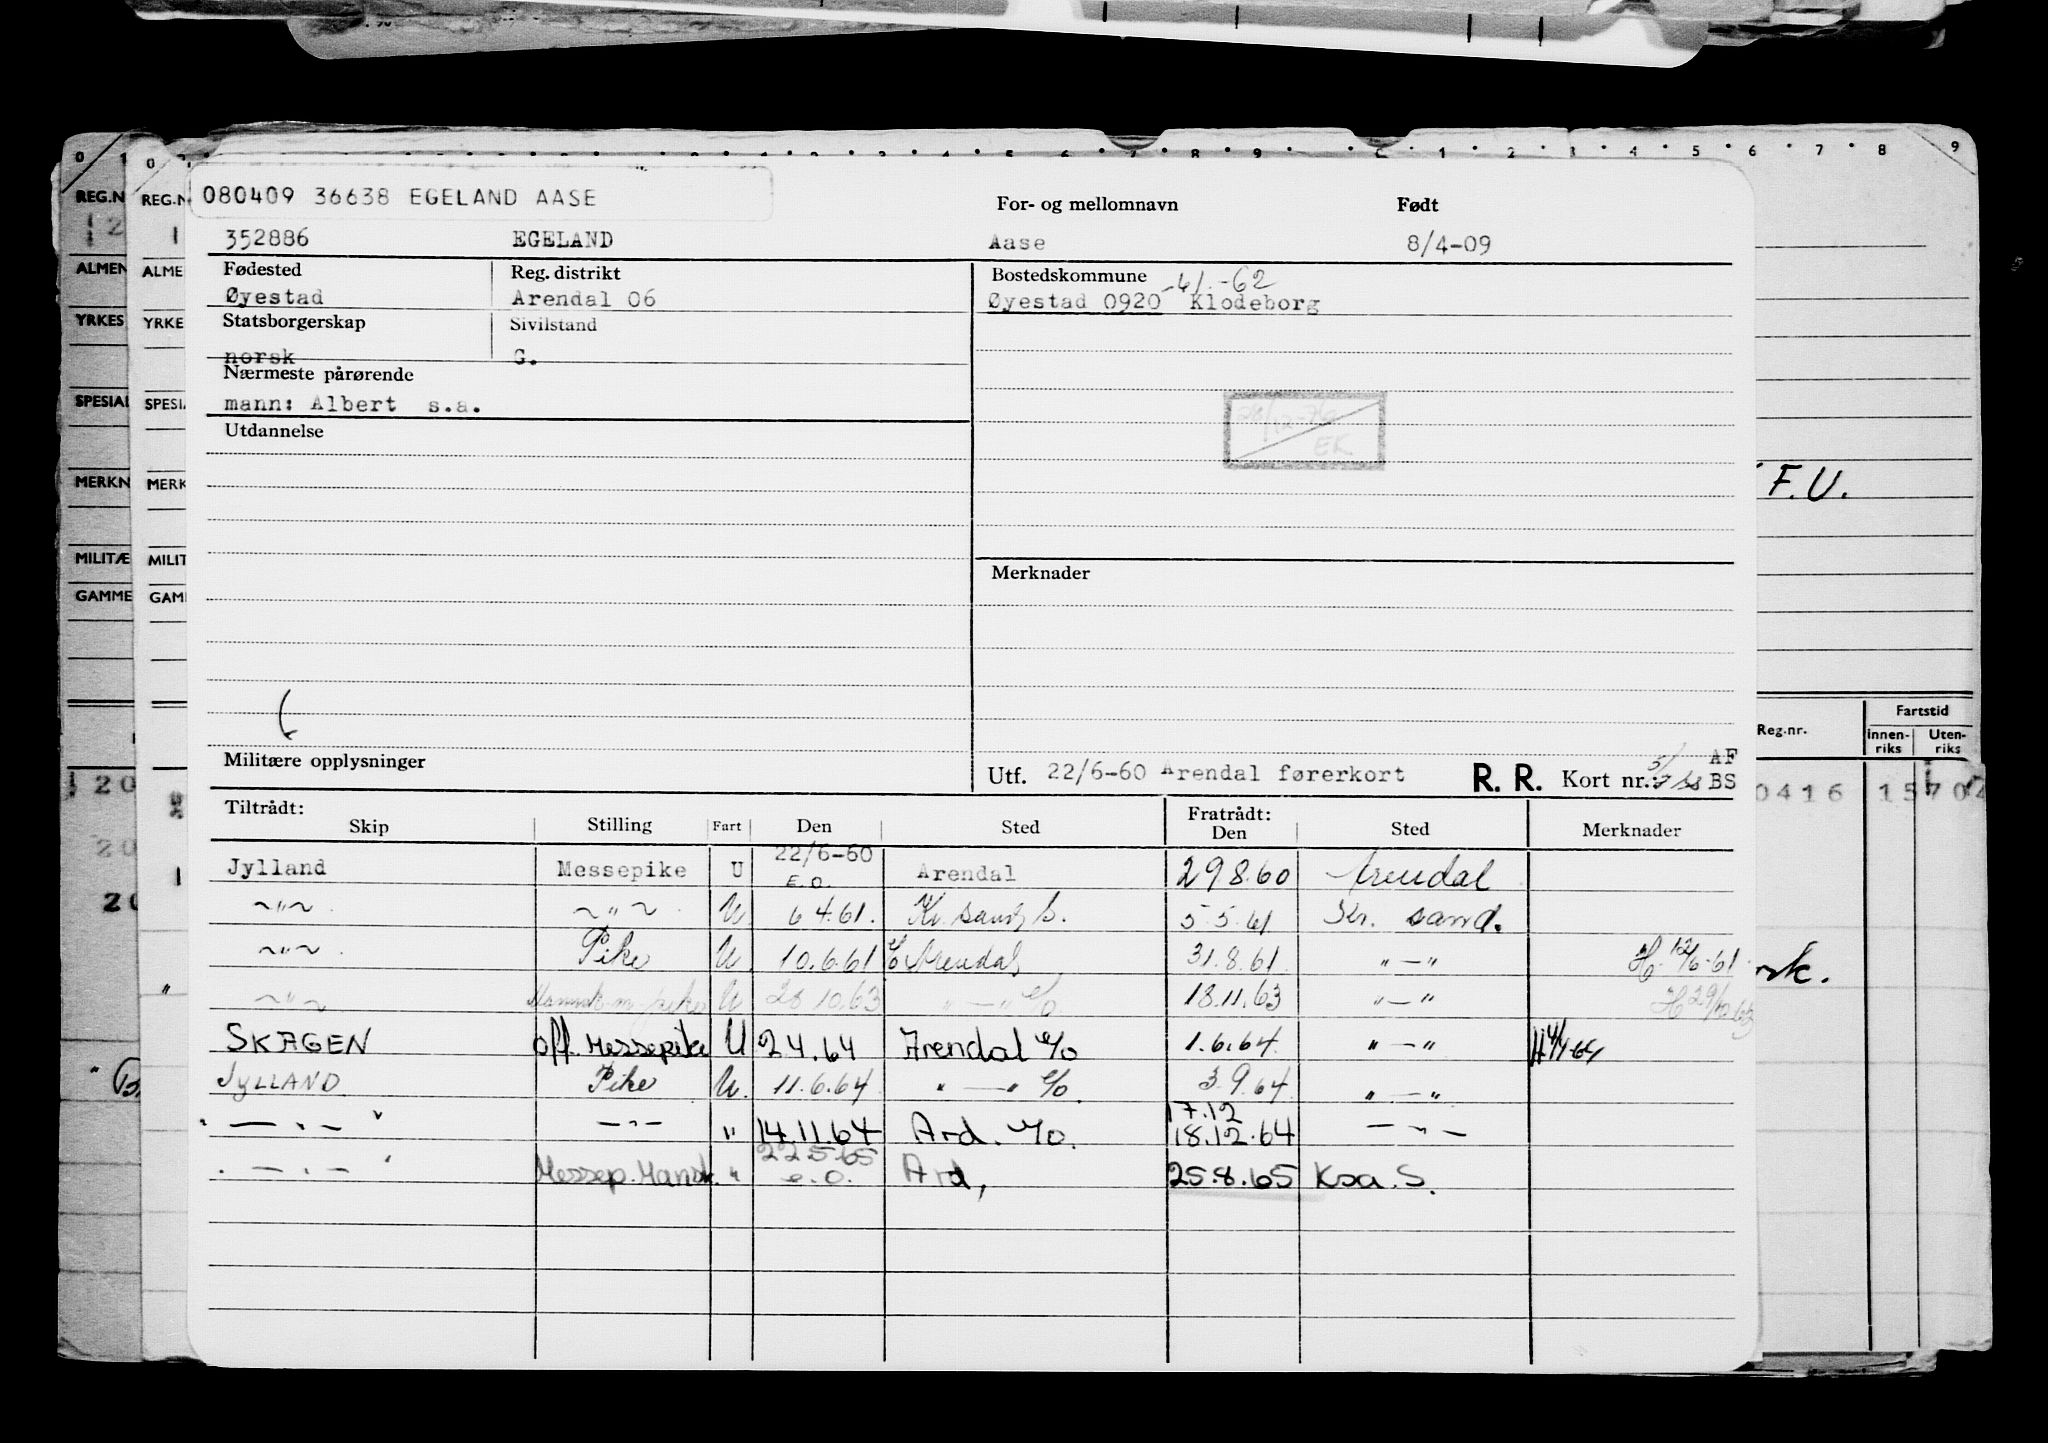 080409 36638 EGELAND AASE
For- og mellomnavn Født
352886 EGELAND Aase 8/4-09
Fødested Reg. distrikt Bostedskommune -61.-62
Øyestad Arendal 06 Øyestad 0920 Klodeborg
Statsborgerskap Sivilstand
norsk G.
Nærmeste pårørende
mann: Albert s.a.
Utdannelse
EK
Merknader
Militære opplysninger
Utf. 22/6-60 Arendal førerkort R. R. Kort nr.: AF BS
Tiltrådt: Fratrådt:
Skip Stilling Fart Den Sted Den Sted Merknader
Jylland Messepike U 22/6-60 E.O. Arendal 29.8.60 Arendal
~"~ ~"~ U 6.4.61. Kr. sand S. 5.5.61 Kr. sand.
~"~ Pike U 10.6.61 Arendal 31.8.61 "—" H 12/6-61
~"~ U 28.10.63 "—" e/o 18.11.63 "—"
SKAGEN Off. Messepike U 2.4.64 Arendal e/o 1.6.64 "—"
JYLLAND Pike U. 11.6.64 "—" e/o. 3.9.64 "—"
"—"—" —"— " 14.11.64 Ard. e/o. 17.12 18.12.64 —"—
"—"—" Messep. Mansk. " 22.5.65 e.o. Ard, 25.8.65 Ksa. S.
REG.N REG.N
ALMEN ALME
YRKES YRKE
SPESIAL SPESI
MERKN MERK
MILITÆ MILIT
GAMME GAM
F.U.
Reg.nr. Fartstid
Innen-riks Uten-riks
0416